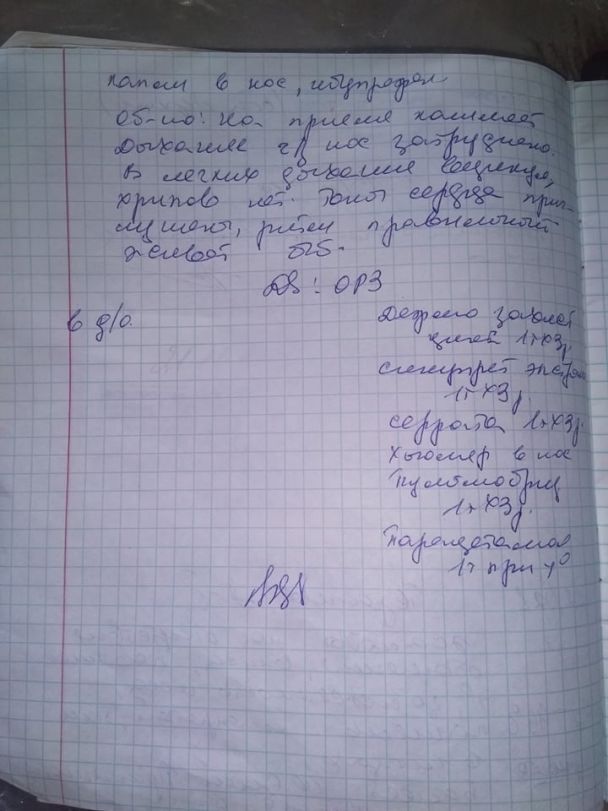 капали в нос, ибупрофен
Об-но: на приеме кашляет
Дыхание ч/з нос затруднено.
В легких дыхание везикул,
хрипов нет. Тоны сердца приг-
лушены, ритм правильный
живот б/б.
DS: ОРЗ
в д/о.
1т х 3 р.
синупрет экстра
1т х 3 р.
серрата 1т х 3 р.
Хьюмер в нос
Пульмобриз
1т х 3 р.
Парацетамол
1т при t°